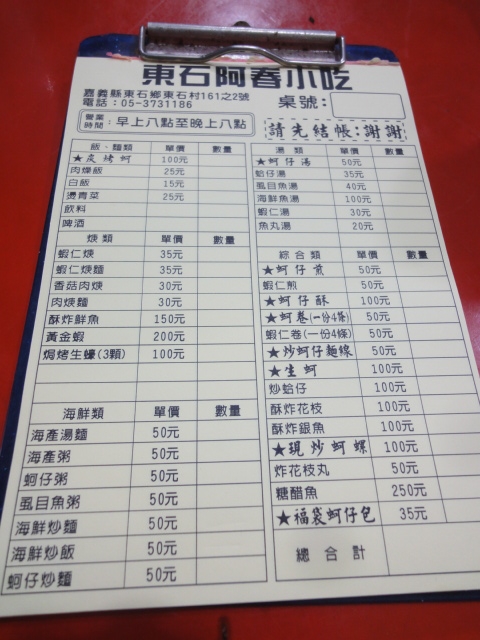 東石阿春小吃
嘉義縣東石鄉東石村161之2號
電話：05-3731186
桌號：
營業時間：早上八點至晚上八點
請先結帳：謝謝
飯、麵類 單價 數量
★炭烤蚵 100元
肉燥飯 25元
白飯 15元
燙青菜 25元
飲料
啤酒
焿類 單價 數量
蝦仁焿 35元
蝦仁焿麵 35元
香菇肉焿 30元
肉焿麵 30元
酥炸鮮魚 150元
黃金蝦 200元
焗烤生蠔(3顆) 100元
海鮮類 單價 數量
海產湯麵 50元
海產粥 50元
蚵仔粥 50元
虱目魚粥 50元
海鮮炒麵 50元
海鮮炒飯 50元
蚵仔炒麵 50元
湯類 單價 數量
★蚵仔湯 50元
蛤仔湯 35元
虱目魚湯 40元
海鮮魚湯 100元
蝦仁湯 30元
魚丸湯 20元
綜合類 單價 數量
★蚵仔煎 50元
蝦仁煎 50元
★蚵仔酥 100元
★蚵卷(一份4條) 50元
蝦仁卷(一份4條) 50元
★炒蚵仔麵線 50元
★生蚵 100元
炒蛤仔 100元
酥炸花枝 100元
酥炸銀魚 100元
★現炒蚵螺 100元
炸花枝丸 50元
糖醋魚 250元
★福袋蚵仔包 35元
總合計